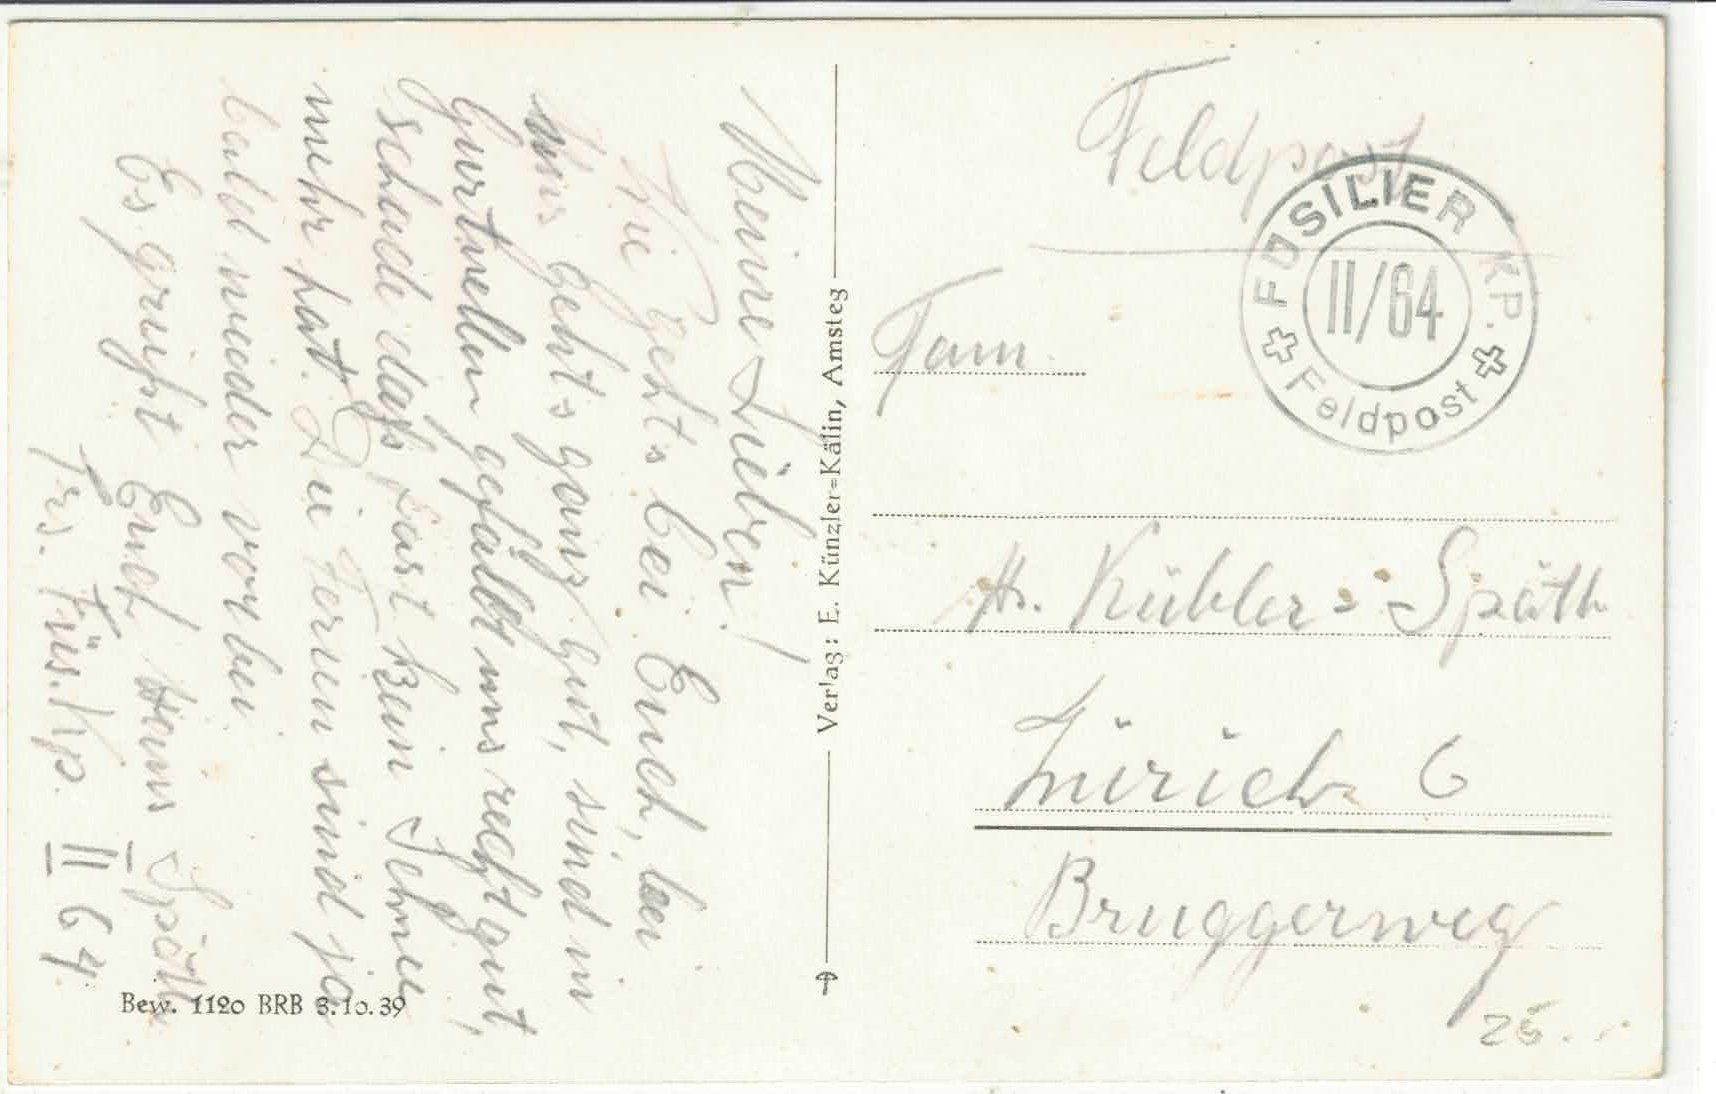 Meine Lieben!
Wie geht's bei Euch, bei
uns geht's ganz gut, sind in
Gurtnellen gefällt uns recht gut,
schade daß fast kein Schnee
mehr hat. Die Ferien sind ja
bald wieder vorbei.
Es grüßt Euch Hans Späth
Füs. Kp. II 64.
Bew. 1120 BRB 3.10.39
Verlag: E. Künzler=Kälin, Amsteg
Feldpost
FÜSILIER KP.
II/64
Feldpost
Fam.
H. Kübler=Späth
Zürich 6
Bruggerweg
25.